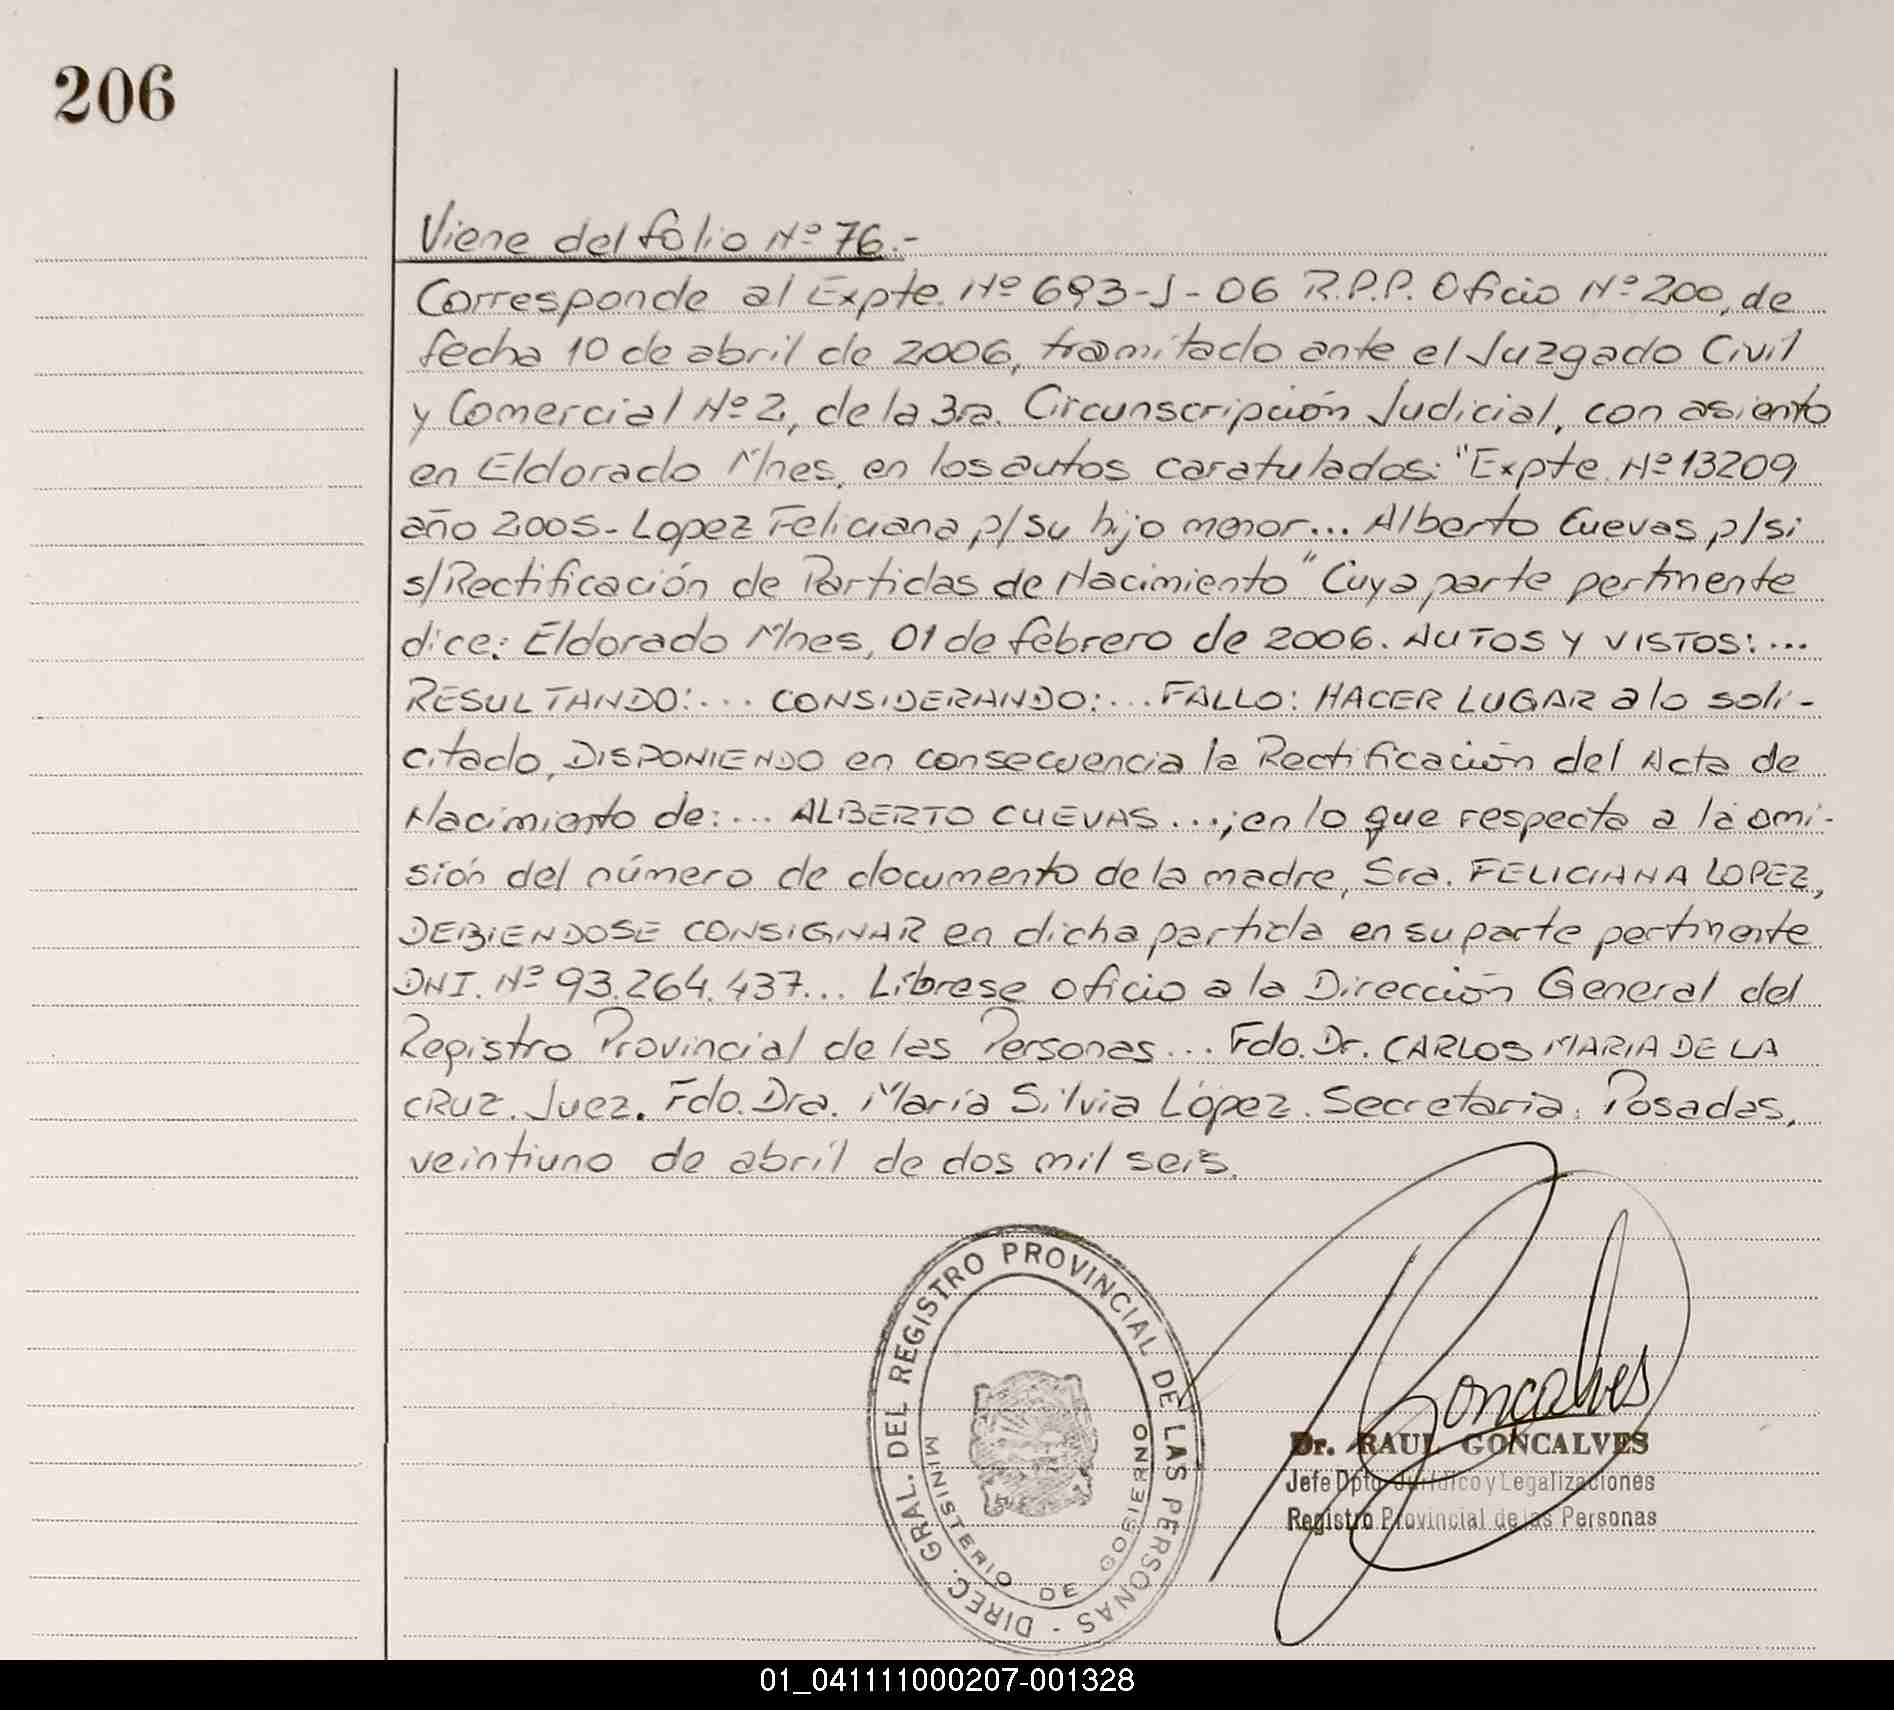 206
Viene del folio Nº 76.-
Corresponde al Expte. Nº 693-J-06 R.P.P. Oficio Nº 200, de
fecha 10 de abril de 2006, tramitado ante el Juzgado Civil
y Comercial Nº 2, de la 3ra. Circunscripción Judicial, con asiento
en Eldorado Mnes, en los autos caratulados: "Expte. Nº 13209
año 2005- Lopez Feliciana p/su hijo menor... Alberto Cuevas p/si
s/Rectificación de Partidas de Nacimiento" Cuya parte pertinente
dice: Eldorado Mnes, 01 de febrero de 2006. AUTOS Y VISTOS:...
RESULTANDO:... CONSIDERANDO:... FALLO: HACER LUGAR a lo soli-
citado, DISPONIENDO en consecuencia la Rectificación del Acta de
Nacimiento de:... ALBERTO CUEVAS...; en lo que respecta a la omi-
sión del número de documento de la madre, Sra. FELICIANA LOPEZ,
DEBIENDOSE CONSIGNAR en dicha partida en su parte pertinente
DNI. Nº 93.264.437... Líbrese oficio a la Dirección General del
Registro Provincial de las Personas... Fdo. Dr. CARLOS MARIA DE LA
CRUZ. Juez. Fdo. Dra. María Silvia López. Secretaria. Posadas,
veintiuno de abril de dos mil seis.
DIREC. GRAL. DEL REGISTRO PROVINCIAL DE LAS PERSONAS -
MINISTERIO DE GOBIERNO
Goncalves
Dr. RAUL GONCALVES
Jefe Dpto Jurídico y Legalizaciones
Registro Provincial de las Personas
01_041111000207-001328